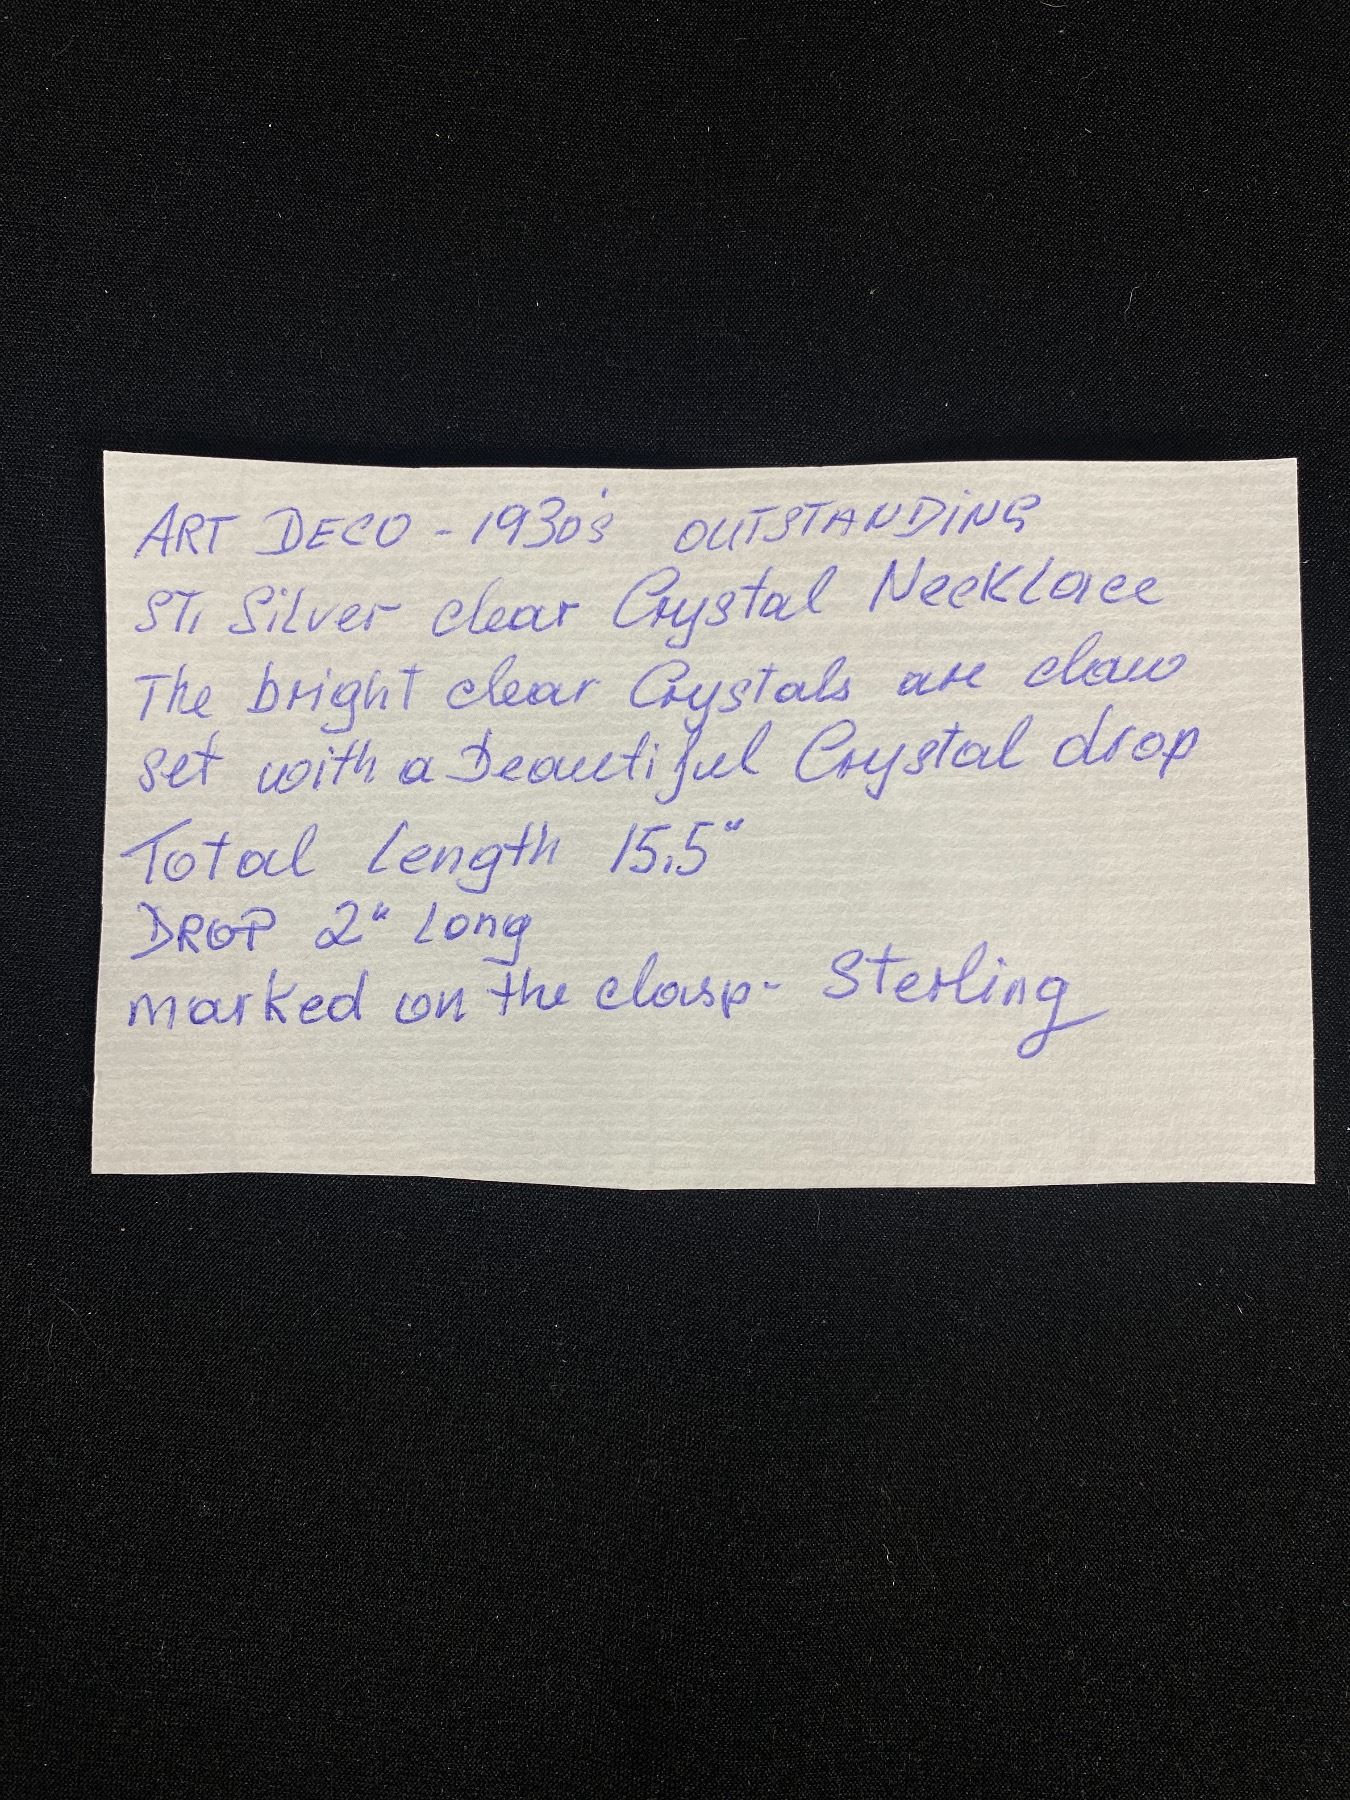 ART DECO - 1930's OUTSTANDING
ST. Silver clear Crystal Necklace
The bright clear Crystals are claw
set with a Beautiful Crystal drop
Total Length 15.5"
DROP 2" Long
marked on the clasp - Sterling